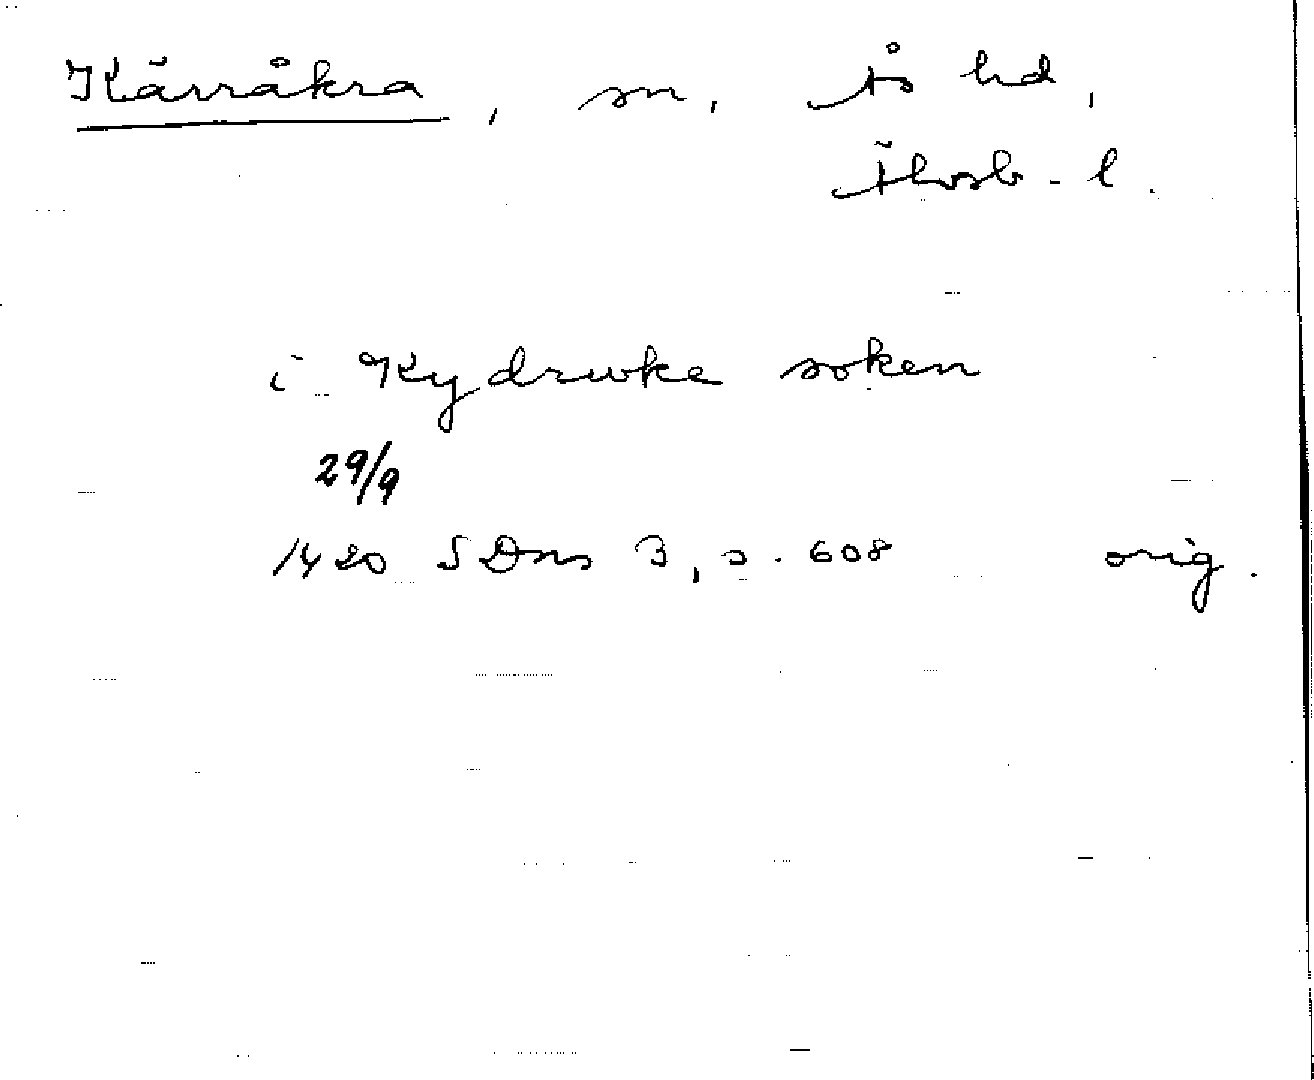 Kärråkra, sn, Ås hd,
Älvsb. l.
i Kydrwke soken
29/9
1420 SDns 3, s. 608 orig.